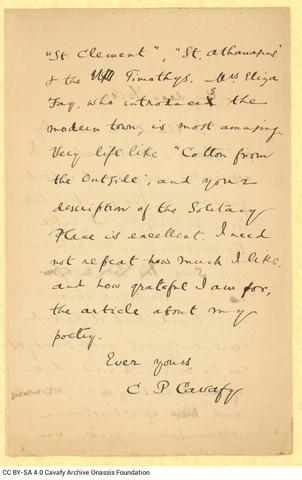 "St. Clement", "St. Athanasius"
& the Timothys. Mrs Eliza
Fay, who introduces the
modern town, is most amusing
Very life like "Cotton from
the Outside", and your
description of the Solitary
Place is excellent. I need
not repeat how much I like,
and how grateful I am for,
the article about my
poetry.
Ever yours
C. P. Cavafy
CC BY-SA 4.0 Cavafy Archive Onassis Foundation